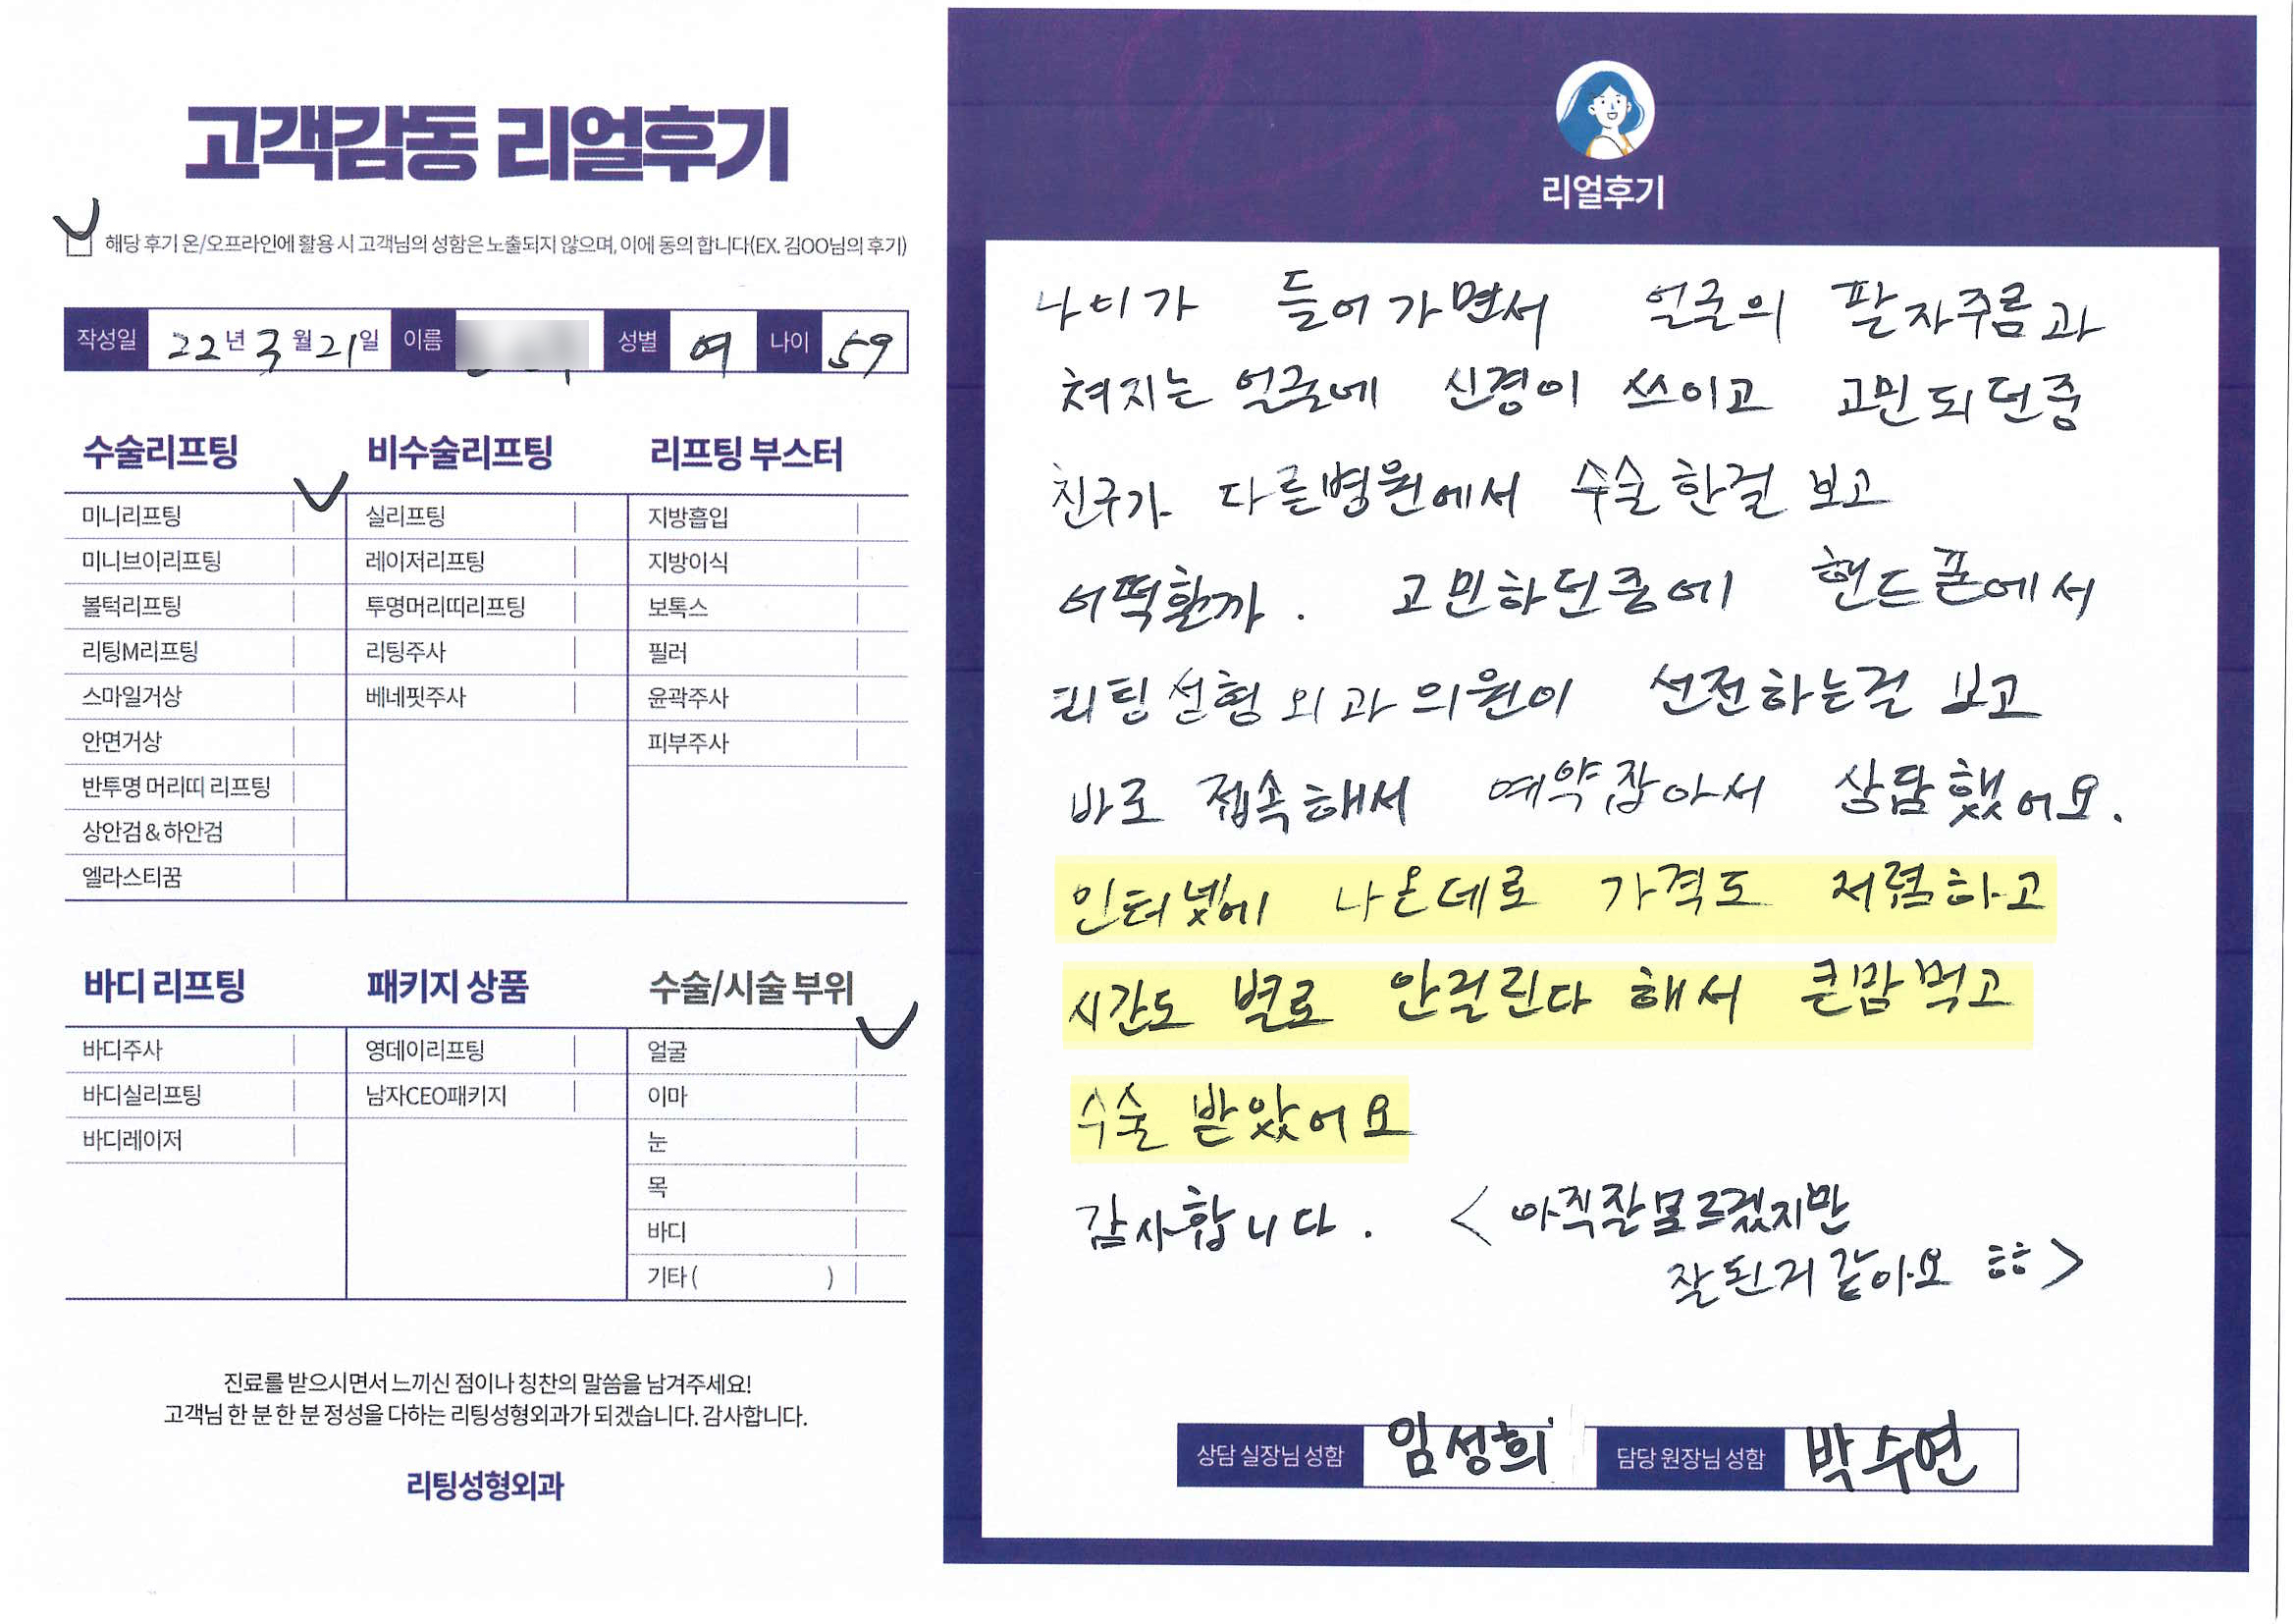 고객감동 리얼후기
해당 후기 온/오프라인에 활용 시 고객님의 성함은 노출되지 않으며, 이에 동의 합니다(EX. 김OO님의 후기)
작성일 22년 3월 21일 이름 성별 여 나이 59
수술리프팅
미니리프팅
미니브이리프팅
볼턱리프팅
리팅M리프팅
스마일거상
안면거상
반투명 머리띠 리프팅
상안검&하안검
엘라스티꿈
비수술리프팅
실리프팅
레이저리프팅
투명머리띠리프팅
리팅주사
베네핏주사
리프팅 부스터
지방흡입
지방이식
보톡스
필러
윤곽주사
피부주사
바디 리프팅
바디주사
바디실리프팅
바디레이저
패키지 상품
영데이리프팅
남자CEO패키지
수술/시술 부위
얼굴
이마
눈
목
바디
기타 ( )
진료를 받으시면서 느끼신 점이나 칭찬의 말씀을 남겨주세요!
고객님 한 분 한 분 정성을 다하는 리팅성형외과가 되겠습니다. 감사합니다.
리팅성형외과
리얼후기
나이가 들어가면서 얼굴의 팔자주름과
쳐지는 얼굴에 신경이 쓰이고 고민되던중
친구가 다른병원에서 수술한걸 보고
어떡할까. 고민하던중에 핸드폰에서
리팅성형외과의원이 선전하는걸 보고
바로 접속해서 예약잡아서 상담했어요.
인터넷에 나온데로 가격도 저렴하고
시간도 별로 안걸린다 해서 큰맘먹고
수술 받았어요
감사합니다. < 아직잘모르겠지만
잘된거같아요 ㅎㅎ >
상담 실장님 성함 임성희 담당 원장님 성함 박수연